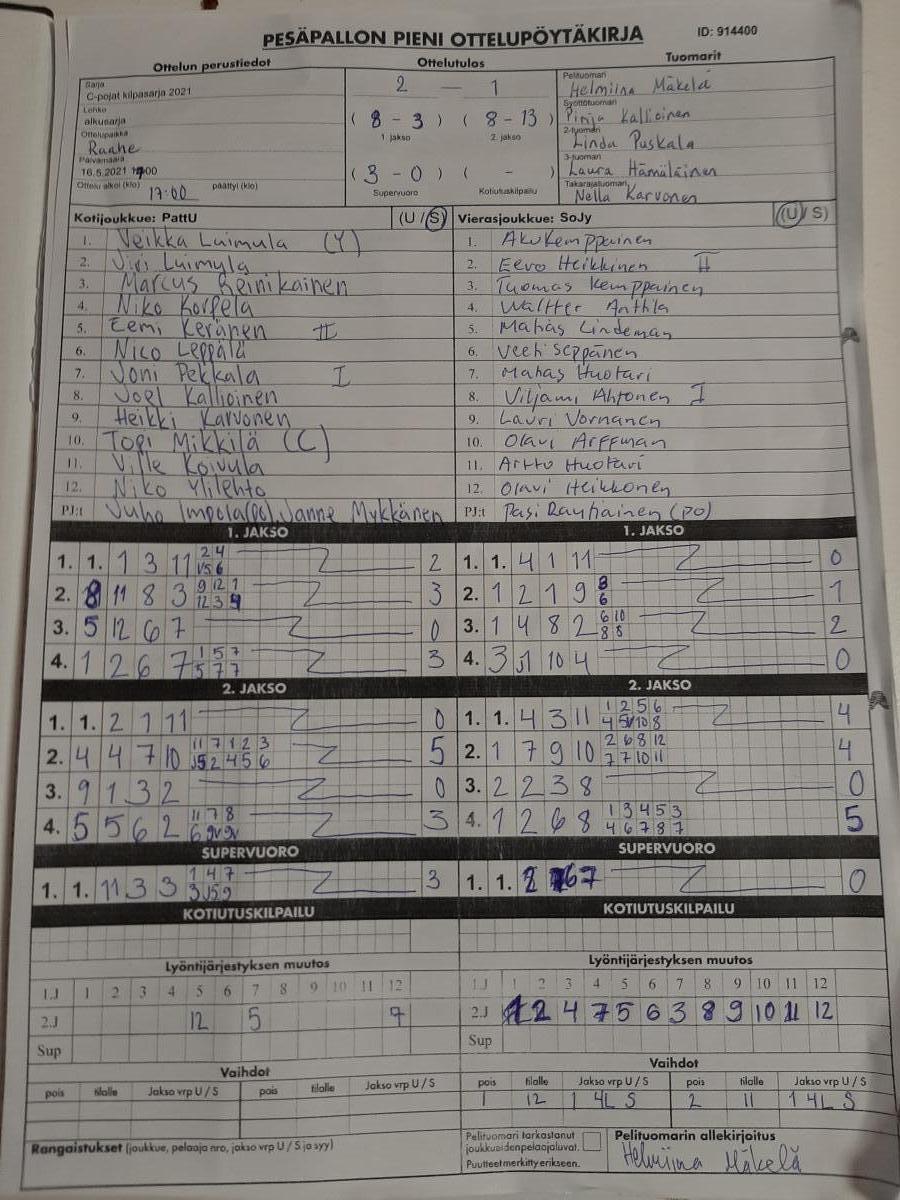 PESÄPALLON PIENI OTTELUPÖYTÄKIRJA
ID: 914400
Ottelun perustiedot
Sarja
C-pojat kilpasarja 2021
Lohko
alkusarja
Ottelupaikka
Raahe
Päivämäärä
16.5.2021
Ottelu alkoi (klo) 17:00 päättyi (klo)
Ottelutulos
2 — 1
( 8 - 3 ) ( 8 - 13 )
1. jakso 2. jakso
( 3 - 0 ) ( - )
Supervuoro Kotiutuskilpailu
Tuomarit
Pelituomari
Helmiina Mäkelä
Syöttötuomari
Pinja Kallioinen
2-tuomari
Linda Puskala
3-tuomari
Laura Hämäläinen
Takarajatuomari
Nella Karvonen
Kotijoukkue: PattU (U / S)
1. Veikka Luimula (Y)
2. Jiri Luimula
3. Marcus Reinikainen
4. Niko Korpela
5. Eemi Keränen II
6. Nico Leppälä
7. Joni Pekkala I
8. Joel Kallioinen
9. Heikki Karvonen
10. Topi Mikkilä (C)
11. Ville Koivula
12. Niko Ylilehto
PJ:t Juho Impola(po), Janne Mykkänen
Vierasjoukkue: SoJy (U / S)
1. Aku Kemppainen
2. Eevo Heikkinen II
3. Tuomas Kemppainen
4. Waltter Anttila
5. Matias Lindeman
6. Veeti Seppänen
7. Matias Huotari
8. Viljami Ahtonen I
9. Lauri Vornanen
10. Olavi Arffman
11. Arttu Huotari
12. Olavi Heikkonen
PJ:t Pasi Rauhainen (PO)
1. JAKSO
1. 1. 1 3 11 2 4 6 2
2. 8 11 8 3 9 12 1 12 3 3
3. 5 12 6 7 0
4. 1 2 6 7 1 5 7 5 7 7 3
1. JAKSO
1. 1. 4 1 11 0
2. 1 2 1 9 8 6 1
3. 1 4 8 2 6 10 8 8 2
4. 3 10 4 0
2. JAKSO
1. 1. 2 1 11 0
2. 4 4 7 10 11 7 1 2 3 2 4 5 6 5
3. 9 1 3 2 0
4. 5 5 6 2 11 7 8 6 3
2. JAKSO
1. 1. 4 3 11 1 2 5 6 4 10 8 4
2. 1 7 9 10 2 6 8 12 7 7 10 11 4
3. 2 2 3 8 0
4. 1 2 6 8 1 3 4 5 3 4 6 7 8 7 5
SUPERVUORO
1. 1. 11 3 3 1 4 7 3 9 3
SUPERVUORO
1. 1. 2 6 7 0
KOTIUTUSKILPAILU
KOTIUTUSKILPAILU
Lyöntijärjestyksen muutos
1.J 1 2 3 4 5 6 7 8 9 10 11 12
2.J 12 5 7
Sup
Lyöntijärjestyksen muutos
1.J 1 2 3 4 5 6 7 8 9 10 11 12
2.J 1 2 4 7 5 6 3 8 9 10 11 12
Sup
Vaihdot
pois tilalle Jakso vrp U / S pois tilalle Jakso vrp U / S
Vaihdot
pois tilalle Jakso vrp U / S pois tilalle Jakso vrp U / S
1 12 1 4L S 2 11 1 4L S
Rangaistukset (joukkue, pelaaja nro, jakso vrp U / S ja syy)
Pelituomari tarkastanut
joukkueidenpelaajaluvat.
Puutteetmerkittyerikseen.
Pelituomarin allekirjoitus
Helmiina Mäkelä